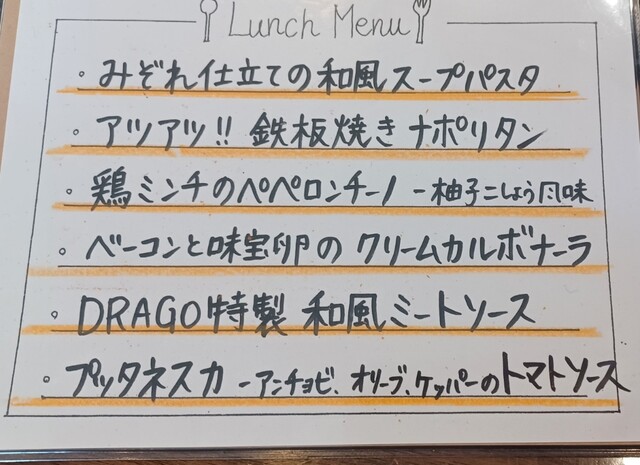 Lunch Menu
・みぞれ仕立ての和風スープパスタ
・アツアツ!! 鉄板焼きナポリタン
・鶏ミンチのペペロンチーノ -柚子こしょう風味
・ベーコンと味宝卵のクリームカルボナーラ
・DRAGO特製 和風ミートソース
・プッタネスカ -アンチョビ、オリーブ、ケッパーのトマトソース